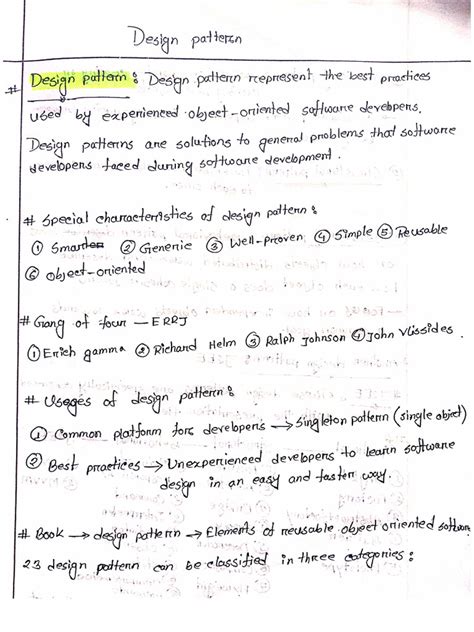 Design pattern
# Design pattern : Design pattern represent the best practices
used by experienced object-oriented software developers.
Design patterns are solutions to general problems that software
developers faced during software development.
# Special characteristics of design pattern :
① Smarter ② Generic ③ Well-proven ④ Simple ⑤ Reusable
⑥ object-oriented
# Gang of four — ERRJ
① Erich gamma ② Richard Helm ③ Ralph Johnson ④ John Vlissides.
# Useges of design pattern :
① Common platform for developers → Singleton pattern (single object)
② Best practices → Unexperienced developers to learn software
design in an easy and faster way.
# Book → design pattern → Elements of reusable object oriented software
23 design pattern can be classified in three categories :